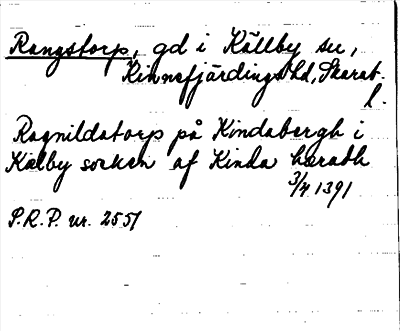 Rangstorp, gd i Källby sn,
Kinnefjärdings hd, Skarab.
l.
Ragnildatorp på Kindabergh i
Kælby sokn af Kinda hæradh
3/4 1391
P.R.P. nr. 2551